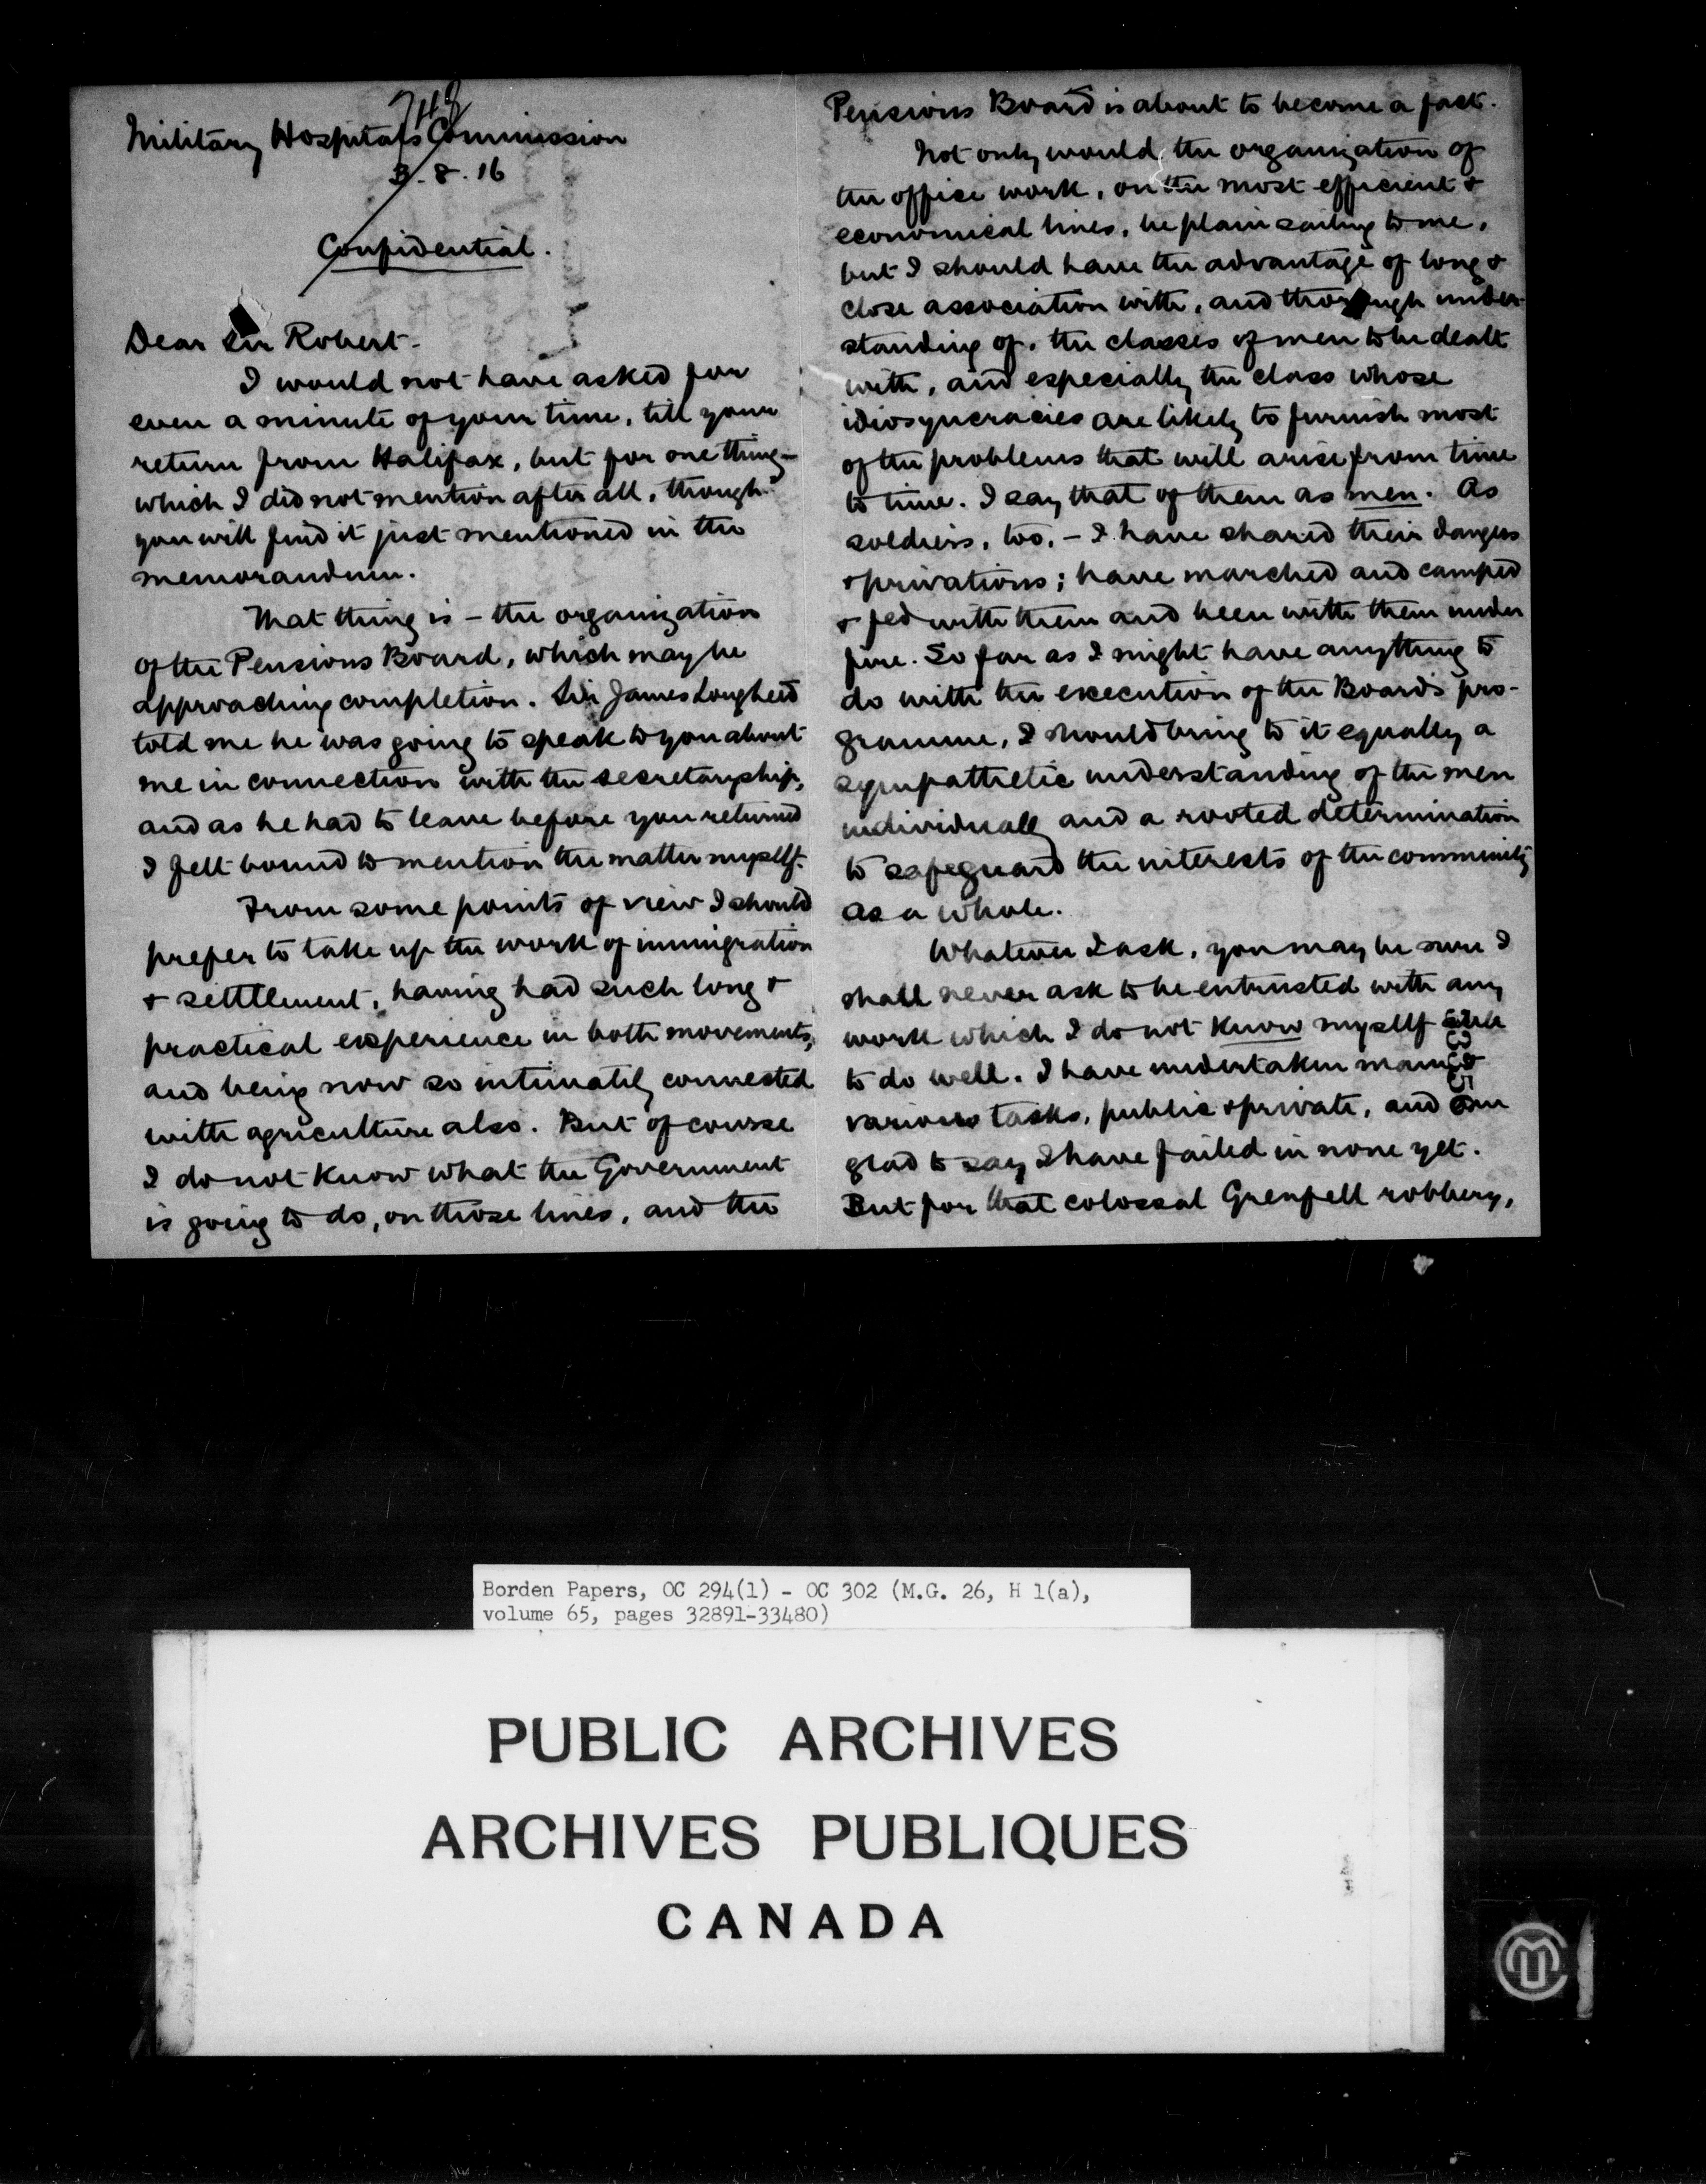 748
Military Hospitals Commission
3.8.16
Confidential.
Dear Sir Robert.
I would not have asked for
even a minute of your time, till your
return from Halifax, but for one thing –
which I did not mention after all, though
you will find it just mentioned in the
memorandum.
That thing is – the organization
of the Pensions Board, which may be
approaching completion. Sir James Lougheed
told me he was going to speak to you about
me in connection with the secretaryship,
and as he had to leave before you returned
I felt bound to mention the matter myself.
From some points of view I should
prefer to take up the work of immigration
& settlement, having had such long &
practical experience in both movements,
and being now so intimately connected
with agriculture also. But of course
I do not know what the Government
is going to do, on those lines, and the
Pensions Board is about to become a fact.
Not only would the organization of
the office work, on the most efficient &
economical lines, be plain sailing to me,
but I should have the advantage of long &
close association with, and thorough under-
standing of, the classes of men to be dealt
with, and especially the class whose
idiosyncracies are likely to furnish most
of the problems that will arise from time
to time. I say that of them as men. As
soldiers, too, – I have shared their dangers
& privations; have marched and camped
& fed with them and been with them under
fire. So far as I might have anything to
do with the execution of the Board's pro-
gramme, I should bring to it equally a
sympathetic understanding of the men
individually and a rooted determination
to safeguard the interests of the community
as a whole.
Whatever I ask, you may be sure I
shall never ask to be entrusted with any
work which I do not know myself able
to do well. I have undertaken many &
various tasks, public & private, and am
glad to say I have failed in none yet.
But for that colossal Grenfell robbery,
Borden Papers, OC 294(1) - OC 302 (M.G. 26, H 1(a),
volume 65, pages 32891-33480)
PUBLIC ARCHIVES
ARCHIVES PUBLIQUES
CANADA